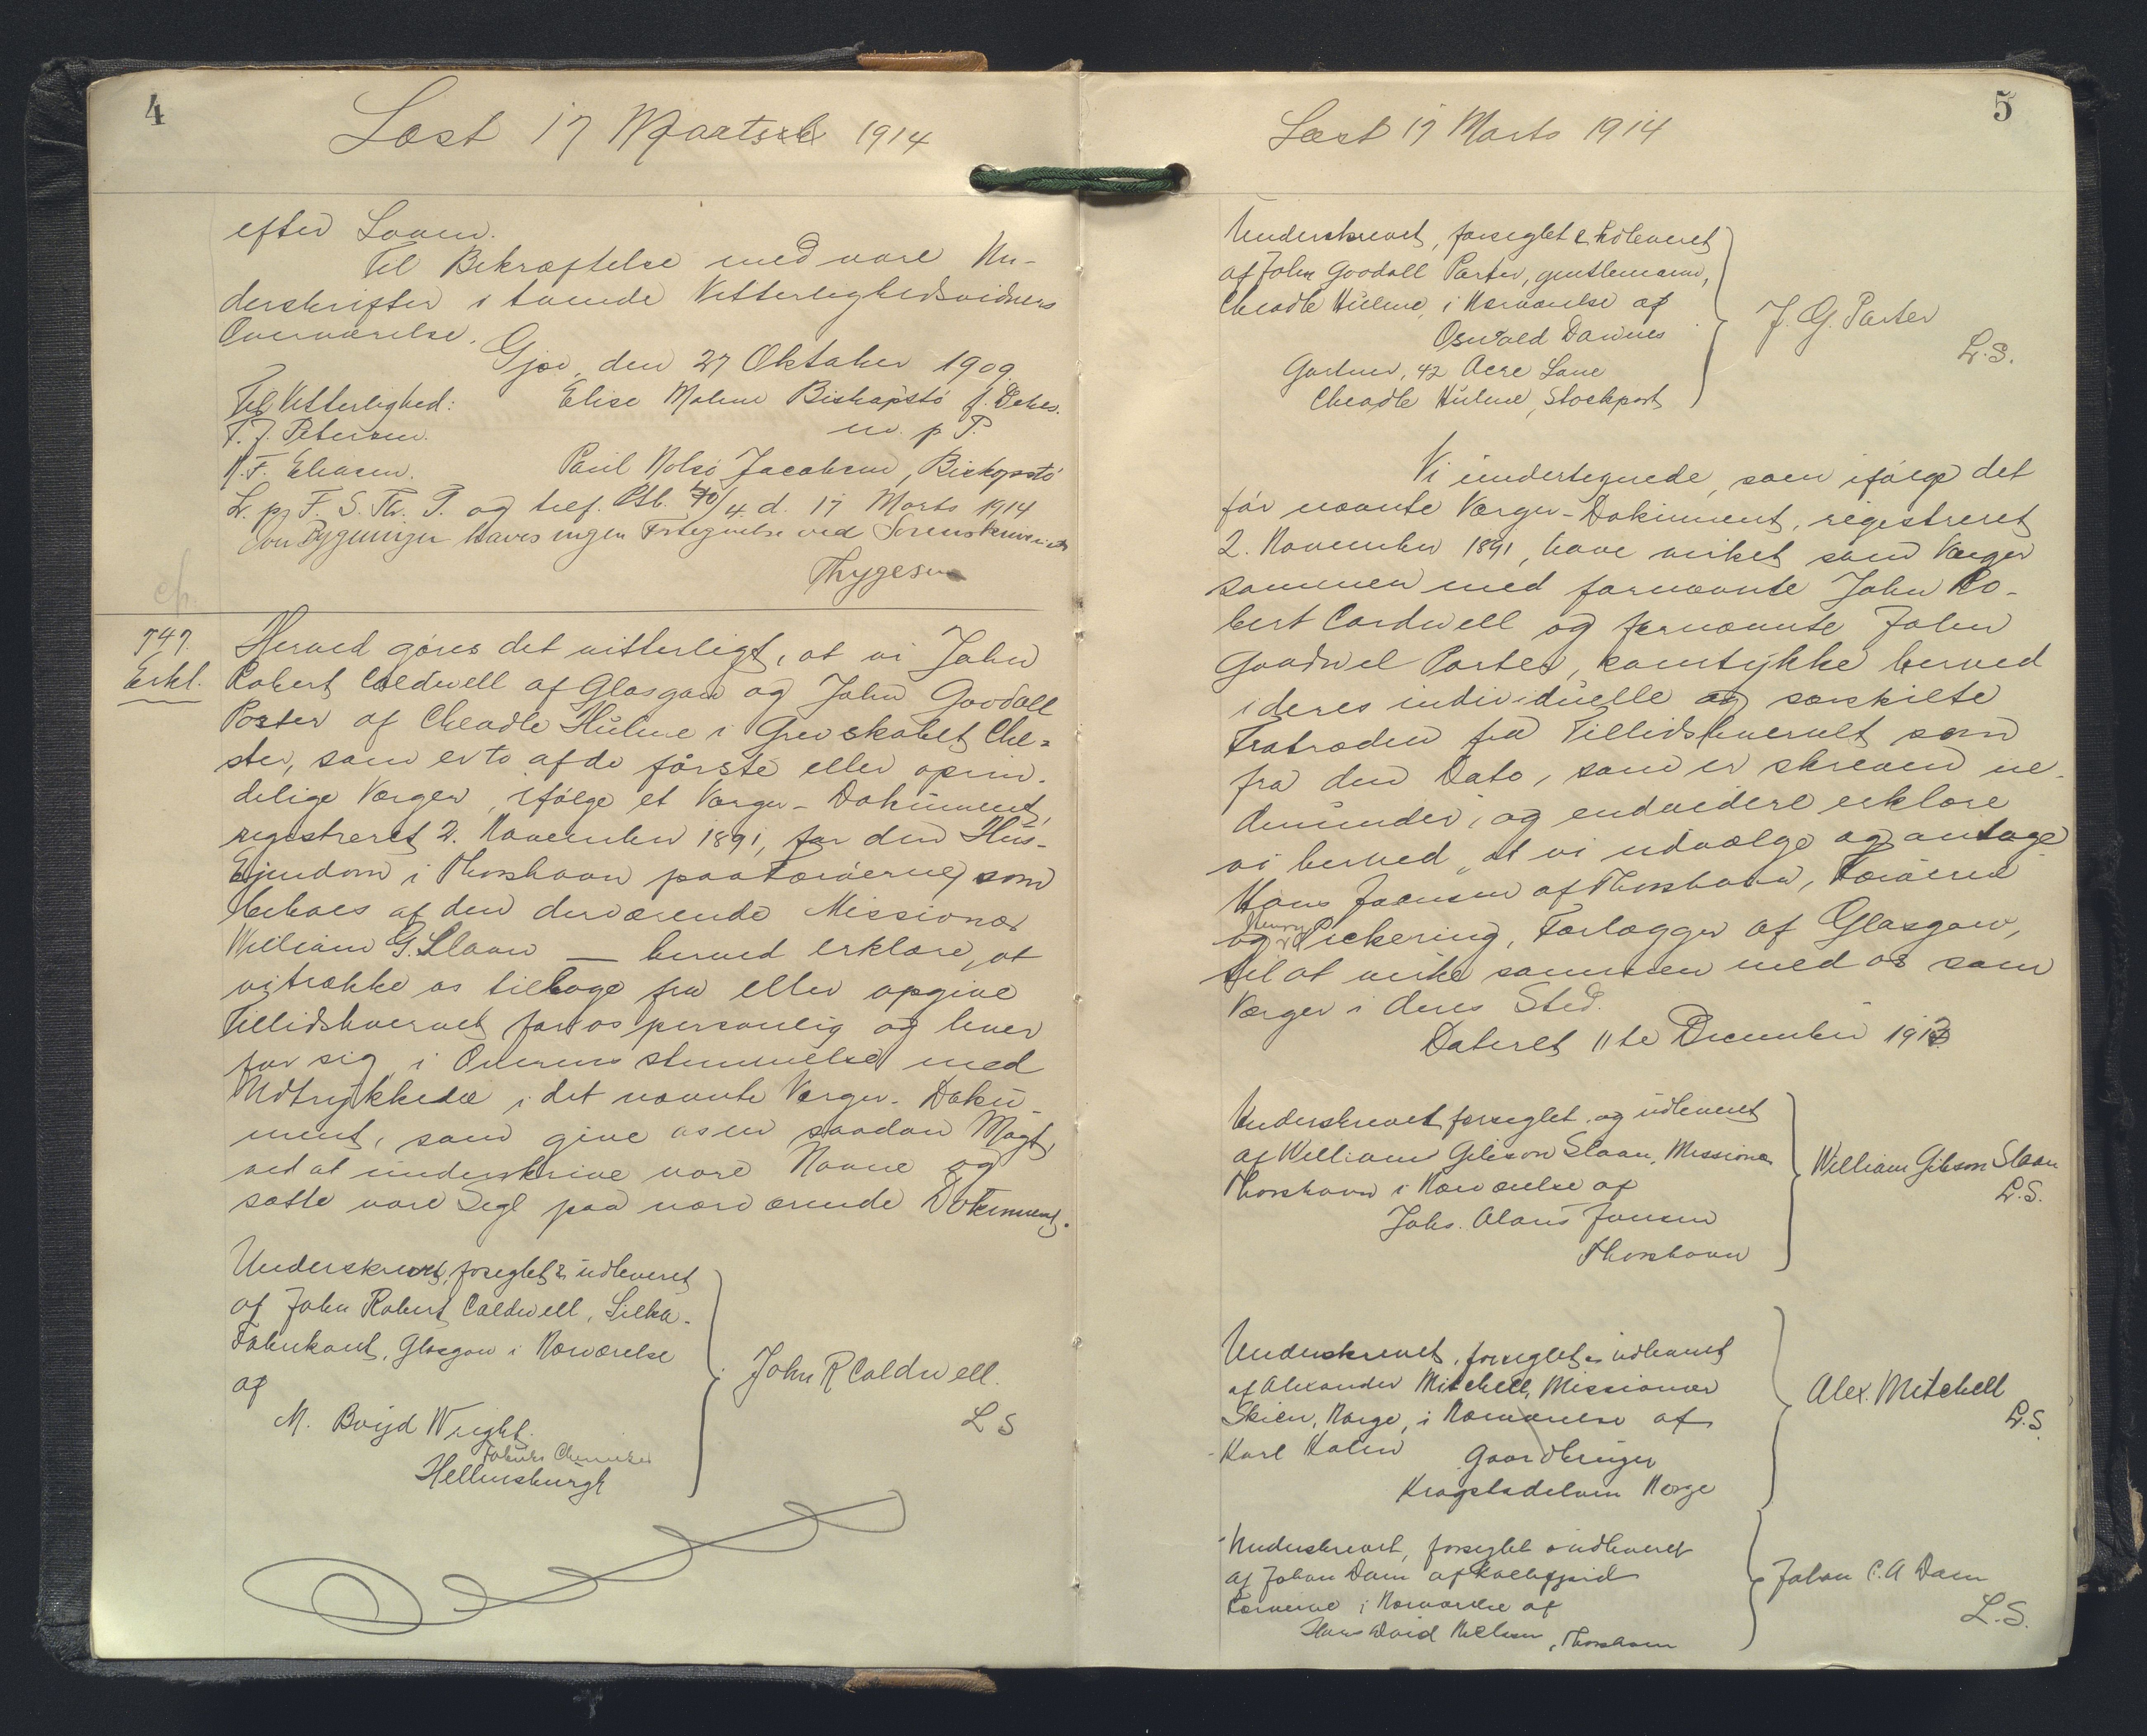 4
Læst 17 Marts 1914
efter Loven.
Til Bekræftelse med vore Un-
derskrifter i tvende Vitterlighedsvidners
Overværelse.
Gjov, den 27 Oktober 1909
Til Vitterlighed: Elise Malene Bishopstø f. Debes.
F. J. Petersen. m. p P.
N. F. Eliasen. Paul Nolsø Jacobsen, Biskopstø
L. p F. S. Th. P. og tilf. Ptb. d. 17 Marts 1914
Over Bygninger haves ingen Fortegnelse ved Sorenskriveriet
Thygesen
747. Herved gøres det vitterligt, at vi John
Erkl. Robert Caldwell af Glasgow og John Goodall
Porter af Cheadle Hulme i Grevskabet Che=
ster, som er to af de første eller oprin-
delige Værger, ifølge et Værge-Dokument,
registreret 2. November 1891, for den Hus-
Ejendom i Thorshavn paa Færøerne, som
beboes af den derværende Missionær
William G. Sloan — herved erklære, at
vi trække os tilbage fra eller opgive
Tillidshvervet for os personlig og hver
for sig, i Overensstemmelse med
Udtrykkede i det nævnte Værge-Doku-
ment, som give os en saadan Magt,
ved at underskrive vore Navne og
sætte vore Segl paa nærværende Dokument.
Underskrevet, forseglet & udleveret
af John Robert Caldwell, Silke-
Fabrikant, Glasgow i Nærværelse
af
John R Caldwell.
L S
M. Boyd Wright.
Hellensburgh
5
Læst 17 Marts 1914
Underskrevet, forseglet & udleveret
af John Goodall Porter, gentlemann,
Cheadle Hulme, i Nærværelse af
Oswald Dawnes
J. G. Porter
L.S.
Gartner, 42 Acre Lane
Cheadle Hulme, Stockport
Vi undertegnede, som ifølge det
før nævnte Værge-Dokument, registreret
2. November 1891, have virket som Værger
sammen med fornævnte John Ro-
bert Cardwell og fornævnte John
Goodwel Porter, samtykke herved
i deres individuelle og særskilte
Fratræden fra Tillidshvervet som
fra den Dato, som er skreven ne-
denunder, og endvidere erklære
vi herved, at vi udvælge og antage
Hans Joensen af Thorshavn, Færøerne
og Henry Pickering, Forlægger af Glasgow,
til at virke sammen med os som
Værger i deres Sted.
Dateret 11te December 1913
Underskrevet forseglet og udleveret
af William Gibson Sloan, Missionær
Thorshavn i Nærværelse af
William Gibson Sloan
L.S.
Johs. Olaus Jensen
Thorshavn
Underskrevet, forseglet & udleveret
af Alexander Mitchell, Missionær
Skien, Norge, i Nærværelse af
Alex. Mitchell
L.S.
Karl Kalen Gaardbruger
Norge
Underskrevet, forseglet & udleveret
af Johan Dam af Kollefjord
Færøerne i Nærværelse af
Johan C. A Dam
L.S.
Hans David Nielsen, Thorshavn